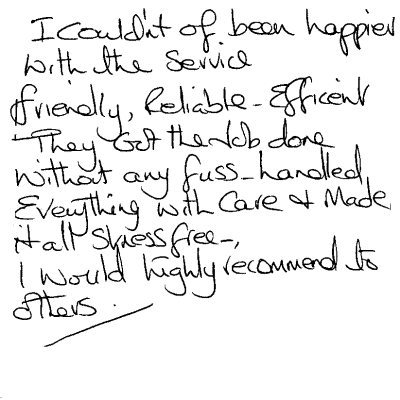 I couldn't of been happier
with the service
friendly, Reliable - Efficient
They Got the Job done
Without any fuss - handled
Everything with Care & Made
it all Stress free -,
I would highly recommend to
others.